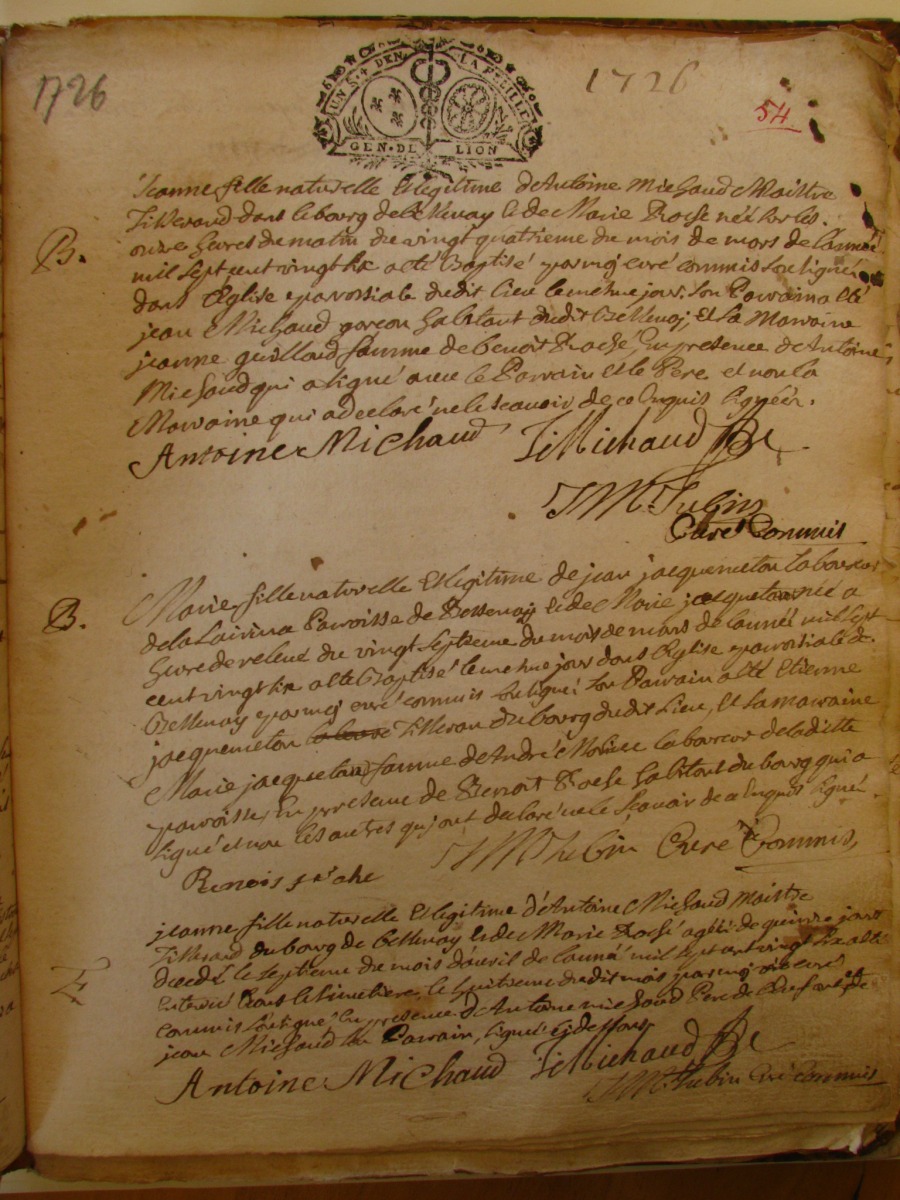 1726
1726
54
UN S + DEN LA FEUILLE
GEN • DE LION
B.
Jeanne fille naturelle Et legitime de Antoine Michaud Maistre
Tisserand dans le bourg de bellenay et de Marie Roche née sur les
onze heures du matin du vingt quatrieme du mois de mars de lannee
mil sept cent vingt six a eté Baptisé par moj curé commis soussigné
dans l'Eglise paroissiale dudit lieu le même jour. son Parrain a eté
jean Michaud garcon habitant dudit Bellenaj, Et la Marraine
jeanne guillaud famme de benoit Roché, En presence de Antoine
Michaud qui a signé avec le Parrain et le Pere et non la
Marraine qui a declaré ne le scauoir de ce Enquis signéer.
Antoine Michaud J. Michaud
JM Jubin
Curé Commis
B.
Marie fille naturelle Et legitime de jean jacquemeton laboureur
de la Paroisse de Bellenaj et de Marie née a
heure de releué du vingt septieme du mois de mars de lannéé mil sept
cent vingt six a eté Baptisé le meme jour dans l'Eglise paroissiale de
Bellenay par moj curé commis soussigné son Parrain a eté Etienne
jacquemeton Tisseran du bourg dudit Lieu, Et la maraine
Marie famme de André laboureur de la ditte
paroisse, En presence de Benoit Roche habitant du bourg qui a
signé et non les autres quj ont declaré ne le Scauoir de ce Enquis signé.
JM Jubin Curé Commis
F.
jeanne fille naturelle Et legitime d'Antoine Michaud maistre
Tisserand du bourg de bellenay et de Marie Roché agéé de quinze jours
decedé le septieme du mois d'auril de lanné mil sept cent vingt six a eté
Enterré dans le Cimetiere le huitieme dudit mois par moj curé
commis soussigné En presence d'Antoine michaud Pere de l'Enfant et de
jean Michaud son Parrain, signé cj dessous
Antoine Michaud J. Michaud
JM Jubin Curé commis